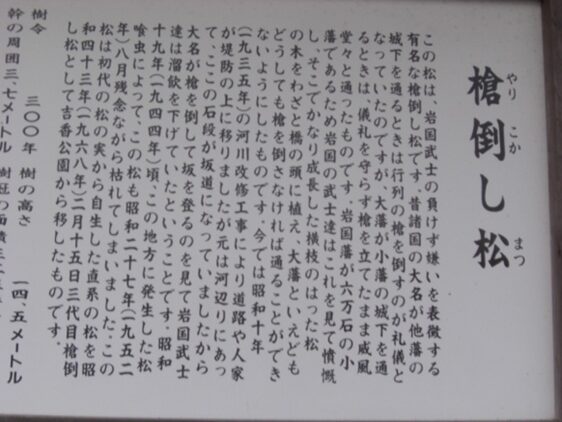 槍倒し松
やり こか まつ
この松は、岩国武士の負けず嫌いを表徴する
有名な槍倒し松です。昔諸国の大名が他藩の
城下を通るときは行列の槍を倒すのが礼儀と
なっていたのですが、大藩が小藩の城下を通
るときは、儀礼を守らず槍を立てたまま威風
堂々と通ったものです。岩国藩が六万石の小
藩であるため岩国の武士達はこれを見て憤慨
し、そこでかなり成長した横枝のはった松
の木をわざと橋の頭に植え、大藩といえども
どうしても槍を倒さなければ通ることができ
ないようにしたものです。今では昭和十年
(一九三五年)の河川改修工事により道路や人家
が堤防の上に移りましたが元は河辺りにあっ
て、ここの石段が坂道になっていましたから
大名が槍を倒して坂を登るのを見て岩国武士
達は溜飲を下げていたということです。昭和
十九年(一九四四年)頃、この地方に発生した松
喰虫によって、この松も昭和二十七年(一九五二
年)八月残念ながら枯れてしまいました。この
松は初代の松の実から自生した直系の松を昭
和四十三年(一九六八年)二月十五日三代目槍倒
し松として吉香公園から移したものです。
樹令 三〇〇年 樹の高さ 一四.五メートル
幹の周囲三.七メートル